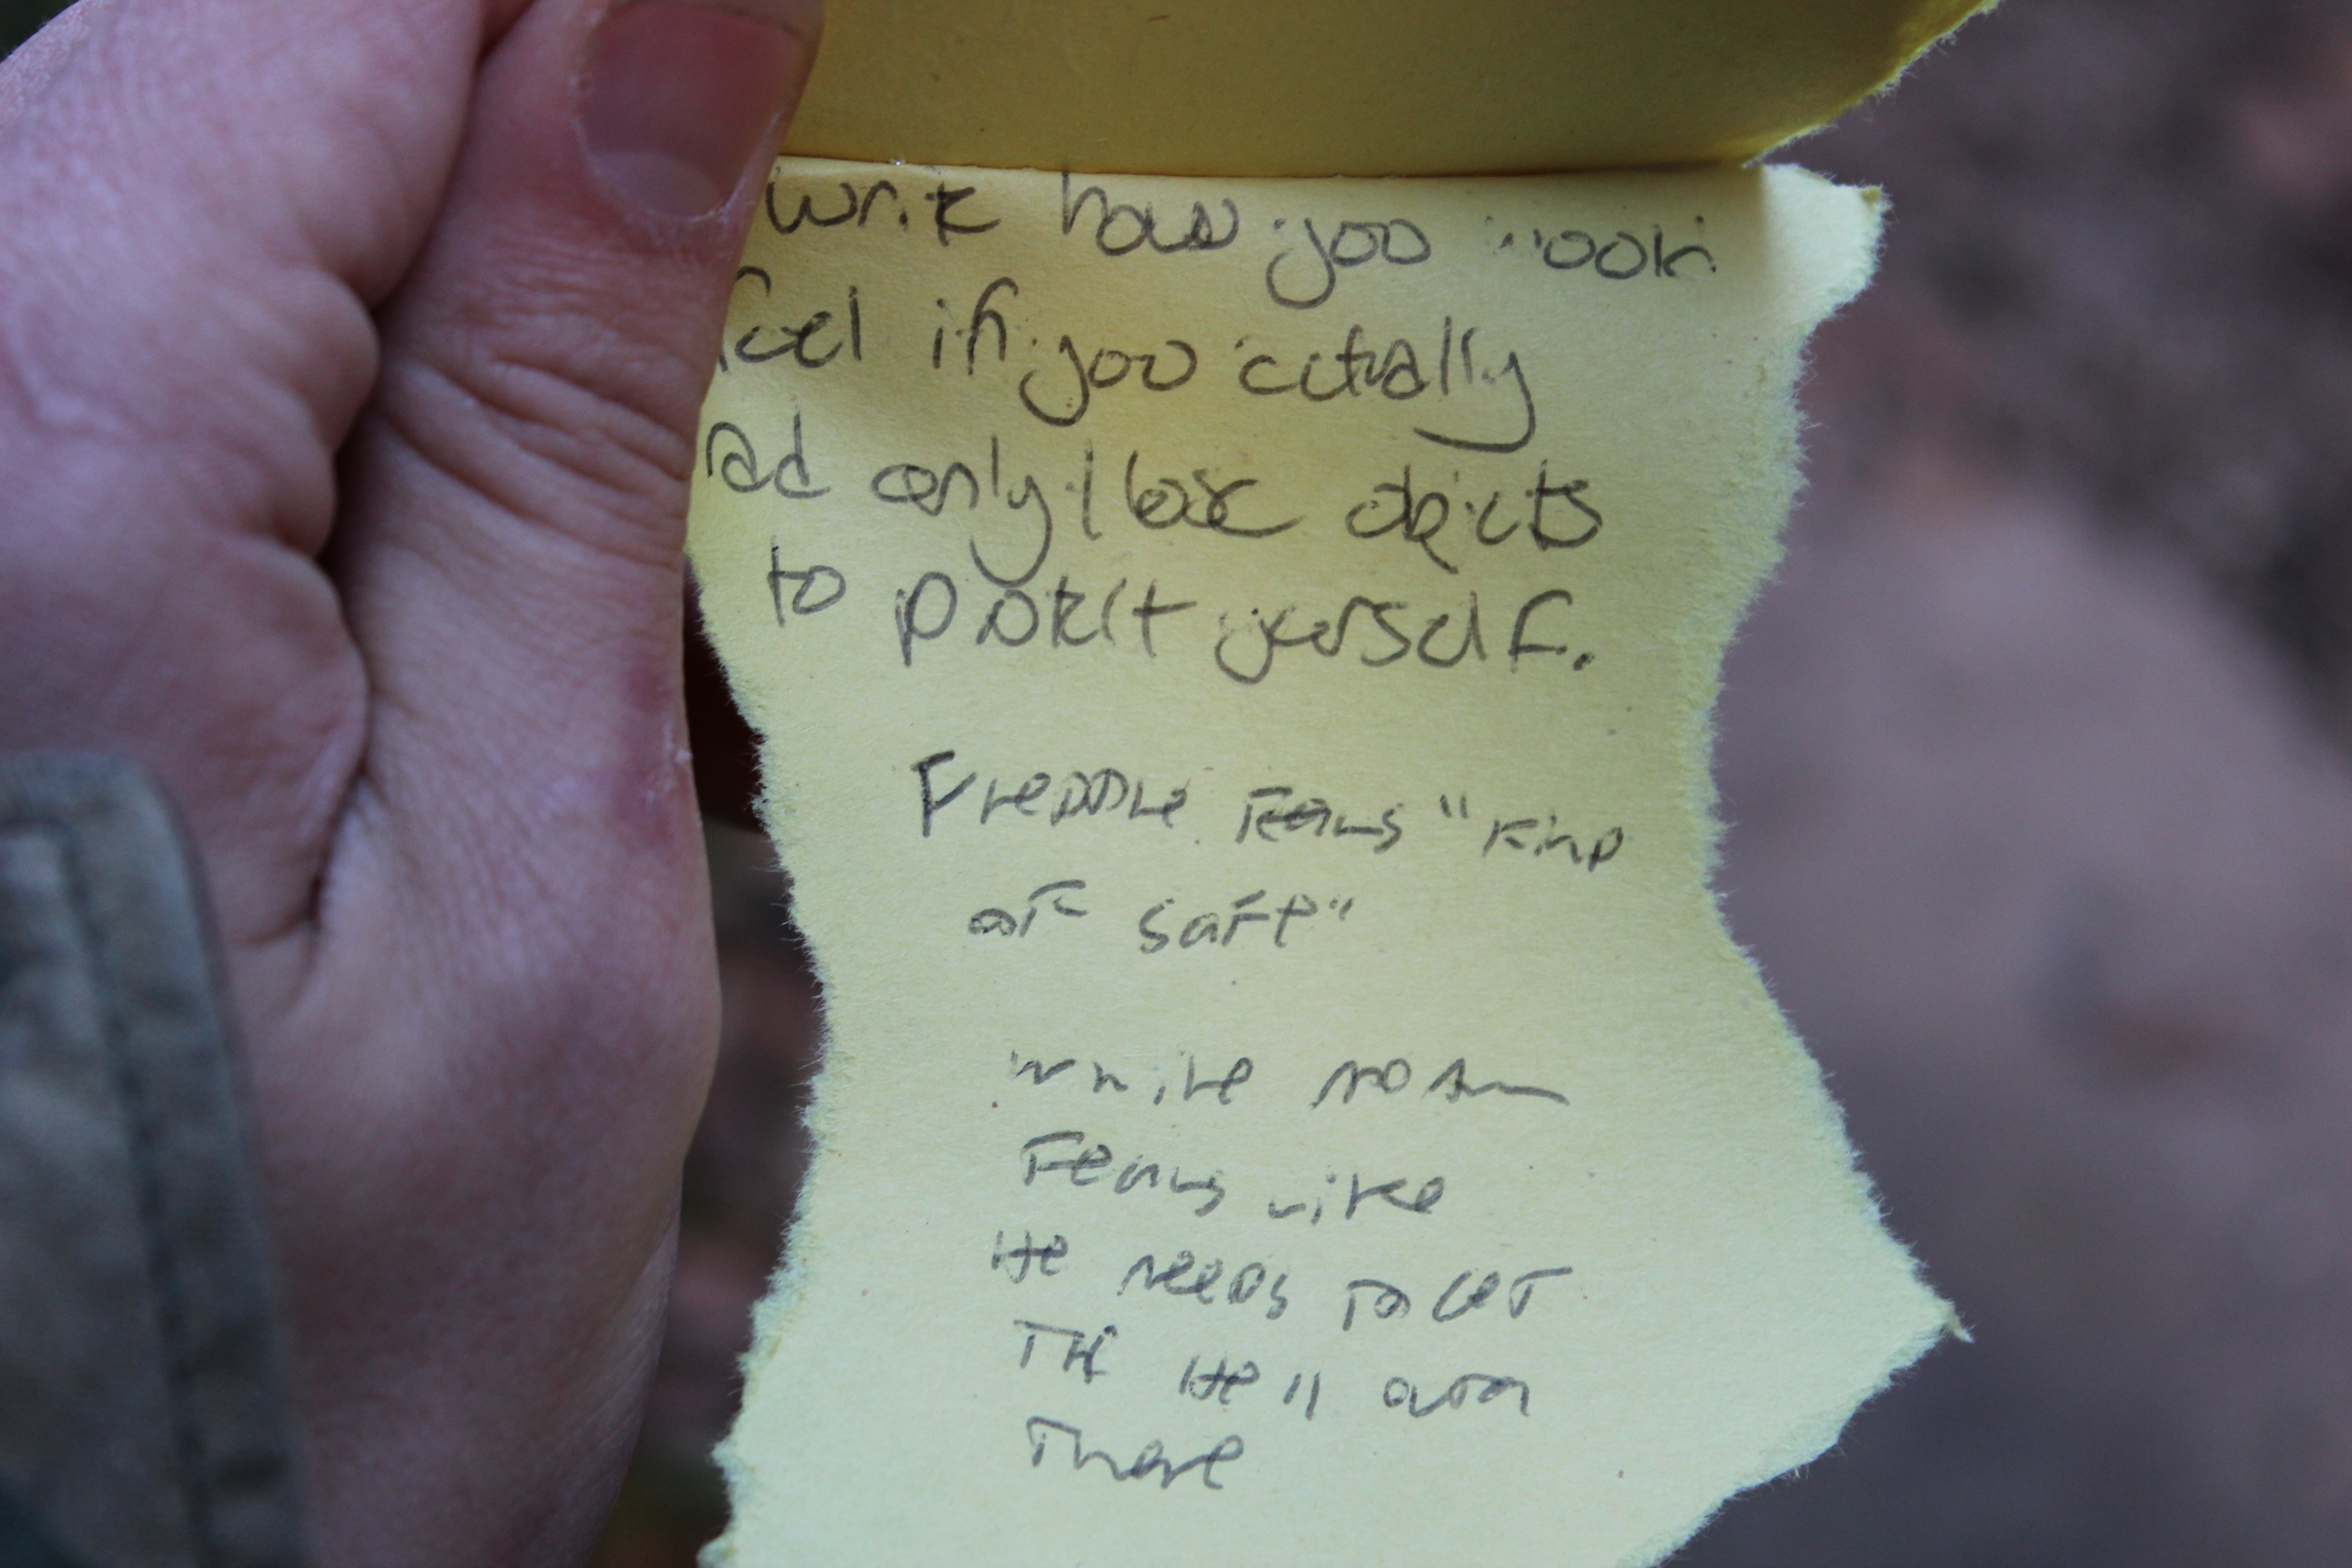 write how you would
feel if you actually
had only these objects
to protect yourself.
Freddie feels "kind
of safe"
while
feels like
He needs to get
the Hell outa
there